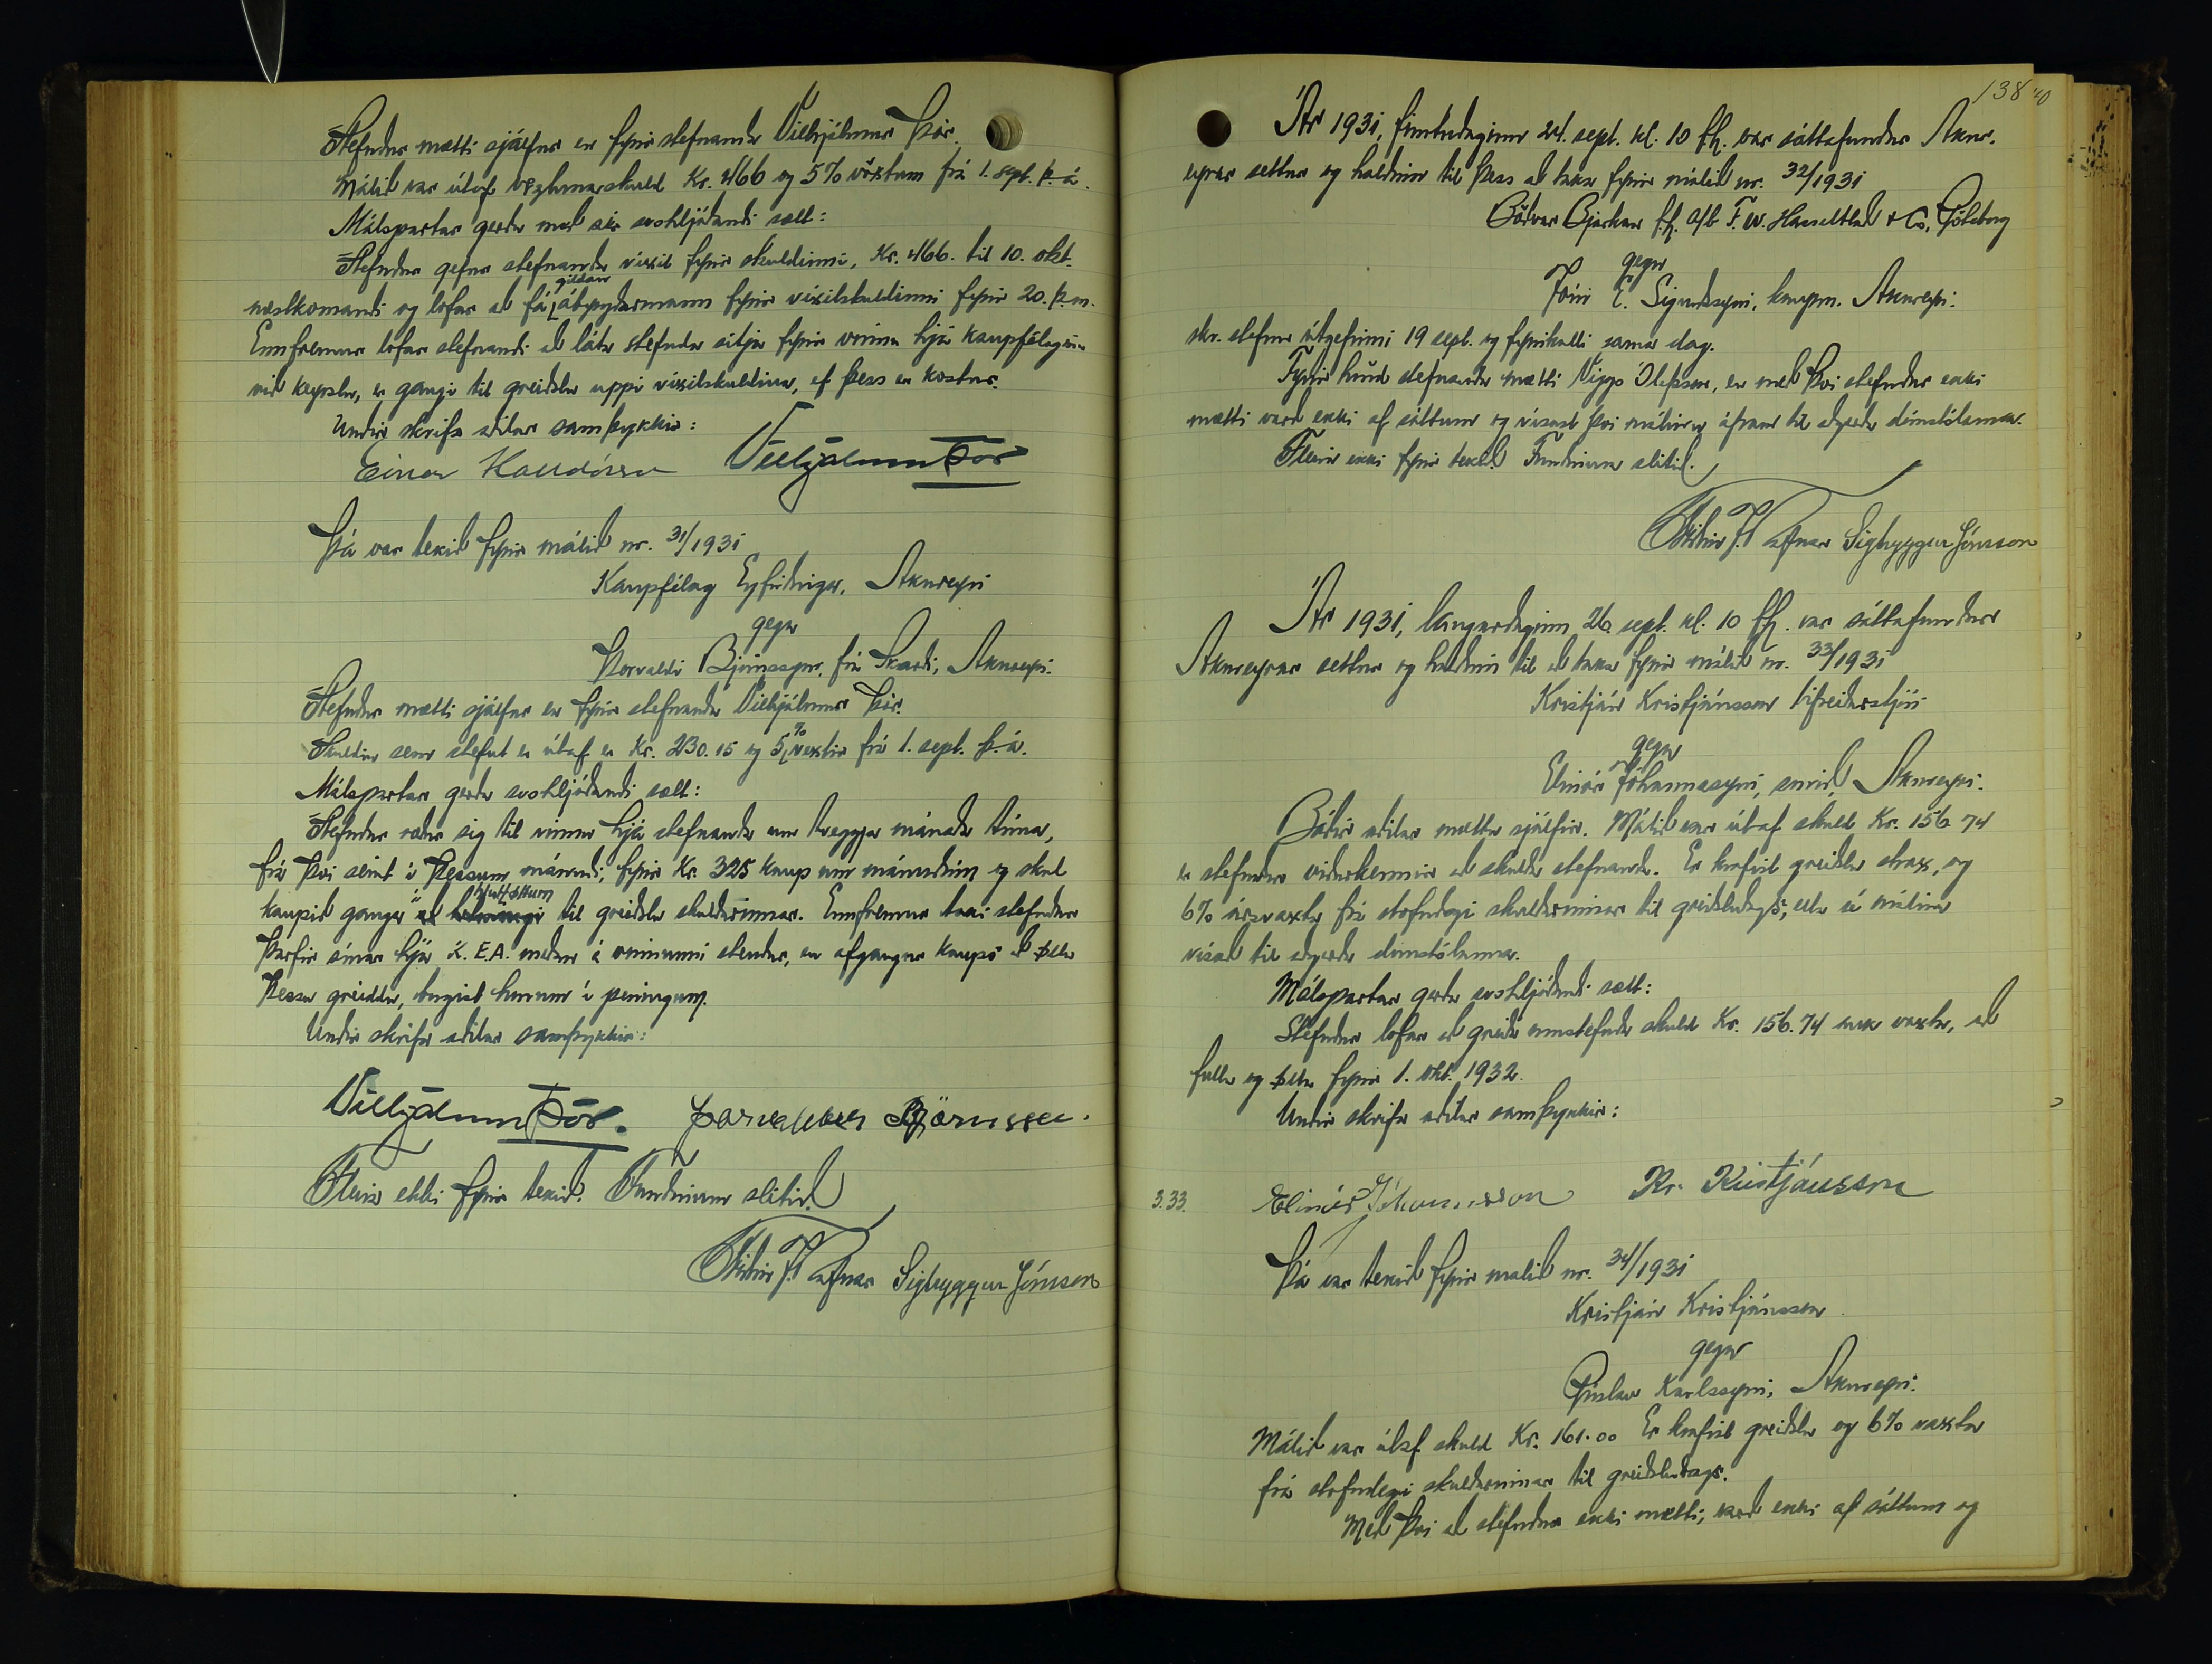 Stefndur mætti sjálfur en fyrir stefnanda Vilhjálmur Þór.
Málið var útaf skuld Kr. 466 og 5% vöxtum frá 1. sept. þ. á.
Málspartar gerðu með sér svohljóðandi sætt:
Stefndur gefur stefnanda víxil fyrir skuldinni, Kr. 466. til 10. okt.
næstkomandi og lofar að fá gildan ábyrgðarmann fyrir víxilskuldinni fyrir 20. þ.m.
Ennfremur lofar stefnandi að láta stefnda sitja fyrir vinnu hjá kaupfélaginu
við keyrslu, er gangi til greiðslu uppí víxilskuldina, ef þess er kostur.
Undir skrifa aðilar samþykkir:
Einar Halldórsson Vilhjálmur Þór
Þá var tekið fyrir málið nr. 31/1931
Kaupfélag Eyfirðinga, Akureyri
gegn
Þorvaldi Björnssyni, frá Skarði, Akureyri.
Stefndur mætti sjálfur en fyrir stefnanda Vilhjálmur Þór.
Skuldin sem stefnt er útaf er Kr. 230.15 og 5% vextir frá 1. sept. þ. á.
Málspartar gerðu svohljóðandi sætt:
Stefndur ræður sig til vinnu hjá stefnanda um tveggja mánaða tíma,
frá því seint í þessum mánuði, fyrir Kr. 325 kaup um mánuðinn og skal
kaupið ganga að til greiðslu skuldarinnar. Ennfremur taki stefndur
þarfir sínar hjá K.E.A. meðan á vinnunni stendur, en afgangur kaups að öllu
þessu greiddu, borgist honum í peningum.
Undir skrifa aðilar samþykkir:
Vilhjálmur Þór. Þorvaldur Björnsson.
Fleira ekki fyrir tekið. Fundinum slitið.
Sigtryggur Jónsson
138 40
Ár 1931, fimtudaginn 24. sept. kl. 10 fh. var sáttafundur Akur-
eyrar settur og haldinn til þess að taka fyrir málið nr. 32/1931
Böðvar Bjarkan fh. A/b F. W. Hasselblad & Co, Göteborg
gegn
Jóni E. Sigurðssyni, kaupm. Akureyri.
skv. stefnu útgefinni 19 sept. og fyrirkalli sama dag.
Fyrir hönd stefnanda mætti Viggó Ólafsson, en með því stefndur ekki
mætti varð ekki af sáttum og vísast því málinu áfram til aðgerða dómstólanna.
Fleira ekki fyrir tekið. Fundinum slitið.
Sigtryggur Jónsson
Ár 1931, laugardaginn 26. sept. kl. 10 fh. var sáttafundur
Akureyrar settur og haldinn til að taka fyrir málið nr. 33/1931
Kristján Kristjánsson bifreiðarstjóri
gegn
Elinór Jóhannssyni, smið, Akureyri.
Báðir aðilar mættu sjálfir. Málið var útaf skuld Kr. 156.74
er stefndur viðurkennir að skulda stefnanda. Er krafist greiðslu strax, og
6% ársvaxta frá stofndegi skuldarinnar til greiðsludags, ella sé málinu
vísað til aðgerða dómstólanna.
Málspartar gerðu svohljóðandi sætt:
Stefndur lofar að greiða umstefnda skuld Kr. 156.74 auk vaxta, að
fullu og öllu fyrir 1. okt. 1932.
Undir skrifa aðilar samþykkir:
3.33. Elinór Jóhannsson Kr. Kristjánsson
Þá var tekið fyrir málið nr. 34/1931
Kristján Kristjánsson
gegn
Karlssyni, Akureyri.
Málið var útaf skuld Kr. 161.00 Er krafist greiðslu og 6% vaxta
frá stofndegi skuldarinnar til greiðsludags.
Með því að stefndur ekki mætti, varð ekki af sáttum og